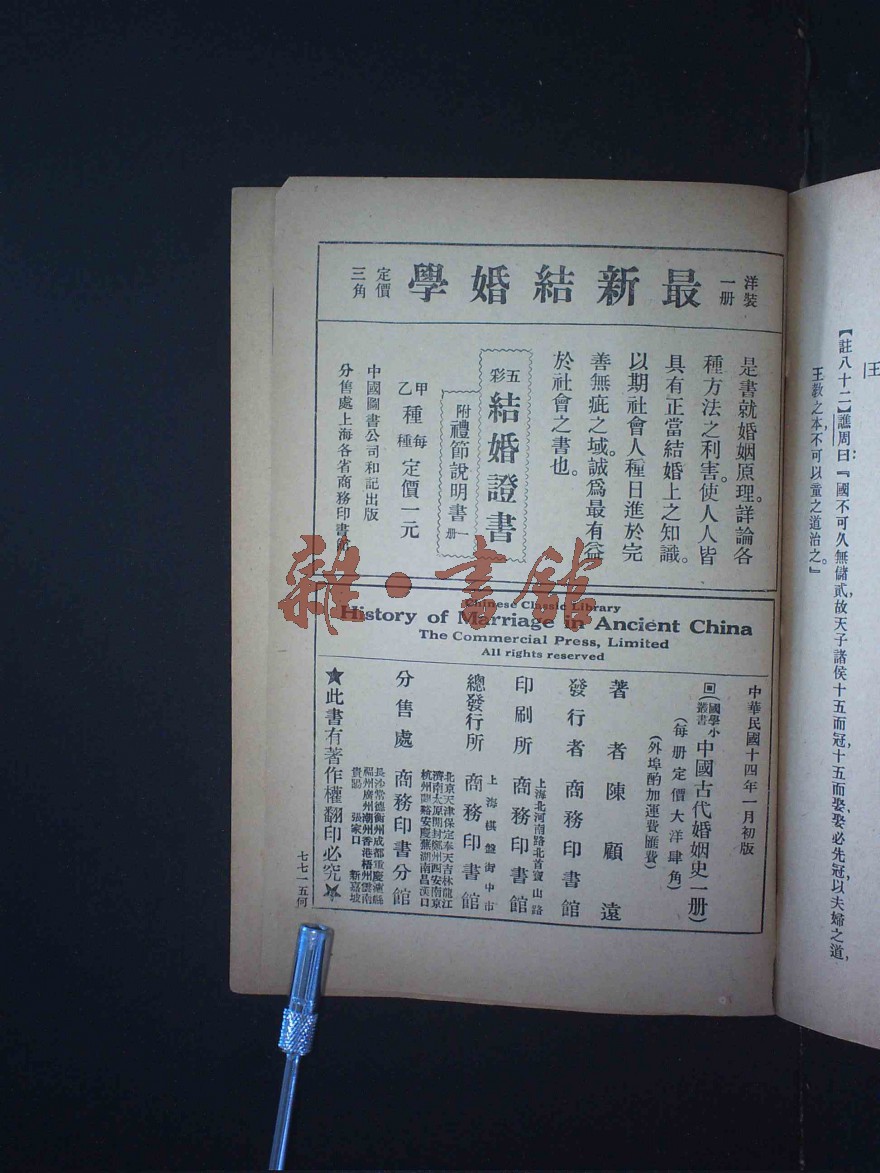 王
【註八十二】譙周曰：『國不可久無儲貳，故天子諸侯十五而冠，十五而娶，娶必先冠，以夫婦之道，
王教之本，不可以童之道治之。』
洋裝一册
最新結婚學
定價三角
是書就婚姻原理。詳論各
種方法之利害。使人人皆
具有正當結婚上之知識。
以期社會人種日進於完
善無疵之域。誠爲最有益
於社會之書也。
五彩 結婚證書
附禮節說明書一册
甲種每
乙種 定價一元
中國圖書公司和記出版
分售處上海各省商務印書館
Chinese Classic Library
History of Marriage in Ancient China
The Commercial Press, Limited
All rights reserved
中華民國十四年一月初版
回(國學小叢書 中國古代婚姻史一册)
(每册定價大洋肆角)
(外埠酌加運費匯費)
著者 陳顧遠
發行者 商務印書館
上海北河南路北首寶山路
印刷所 商務印書館
上海棋盤街中市
總發行所 商務印書館
北京天津保定奉天吉林龍江
濟南太原開封鄭州西安南京
杭州蘭谿安慶蕪湖南昌漢口
分售處 商務印書分館
長沙常德衡州成都重慶瀘縣
福州廣州潮州香港梧州雲南
貴陽 張家口 新嘉坡
★此書有著作權翻印必究★
七七一五何
雜·書館